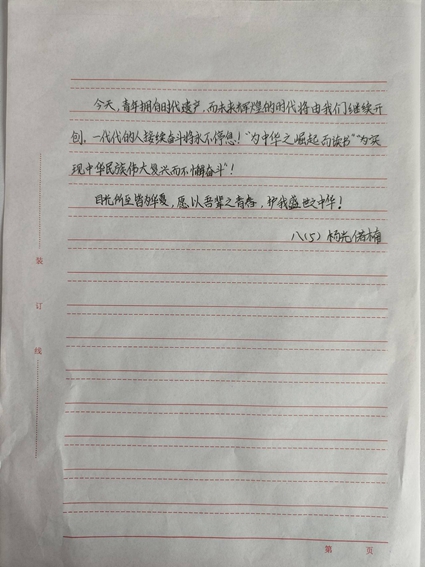 今天,青年拥有时代遗产,而未来辉煌的时代将由我们继续开
创。一代代的人接续奋斗将永不停息!“为中华之崛起而读书”“为实
现中华民族伟大复兴而不懈奋斗”!
目光所至皆为华夏,愿以吾辈之青春,护我盛世之中华!
八(5) 杨光
装
订
线
第 页